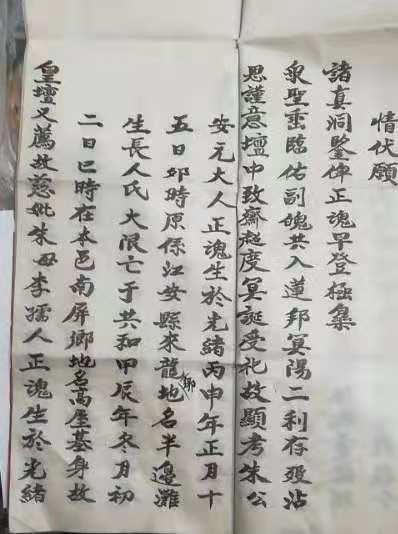 情伏願
諸真洞鑒俾正魂早登極樂
衆聖垂臨佑副魄共入蓮邦冥陽二利存歿沾
恩謹意壇中致齋超度冥誕受礼故顯考朱公
安元大人正魂生於光緒丙申年正月十
五日卯時原係江安縣來龍鄉地名半邊灘
生長人氏大限亡于共和甲辰年冬月初
二日巳時在本邑南屏鄉地名高屋基身故
皇壇又薦故慈妣朱母李孺人正魂生於光緒